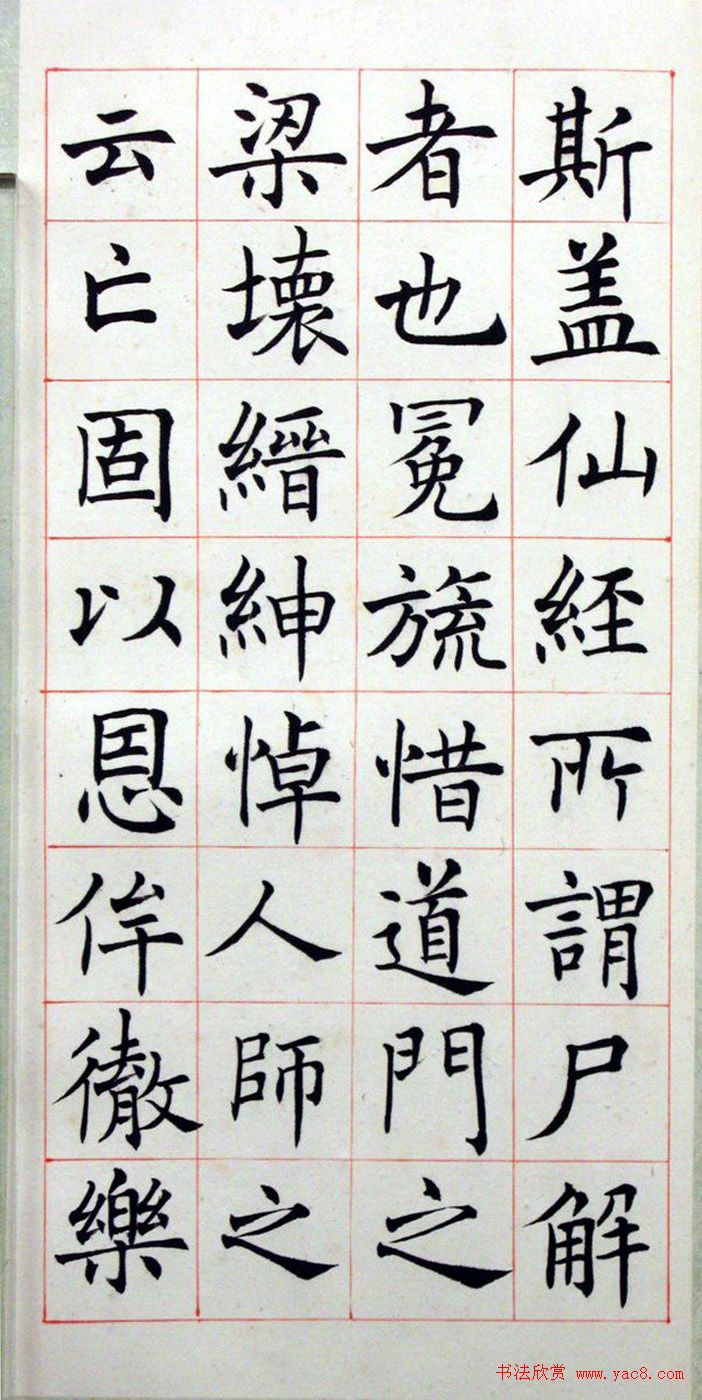 斯盖仙經所謂尸解
者也冕旒惜道門之
梁壞縉紳悼人師之
云亡固以恩侔徹樂
书法欣赏 www.yac8.com